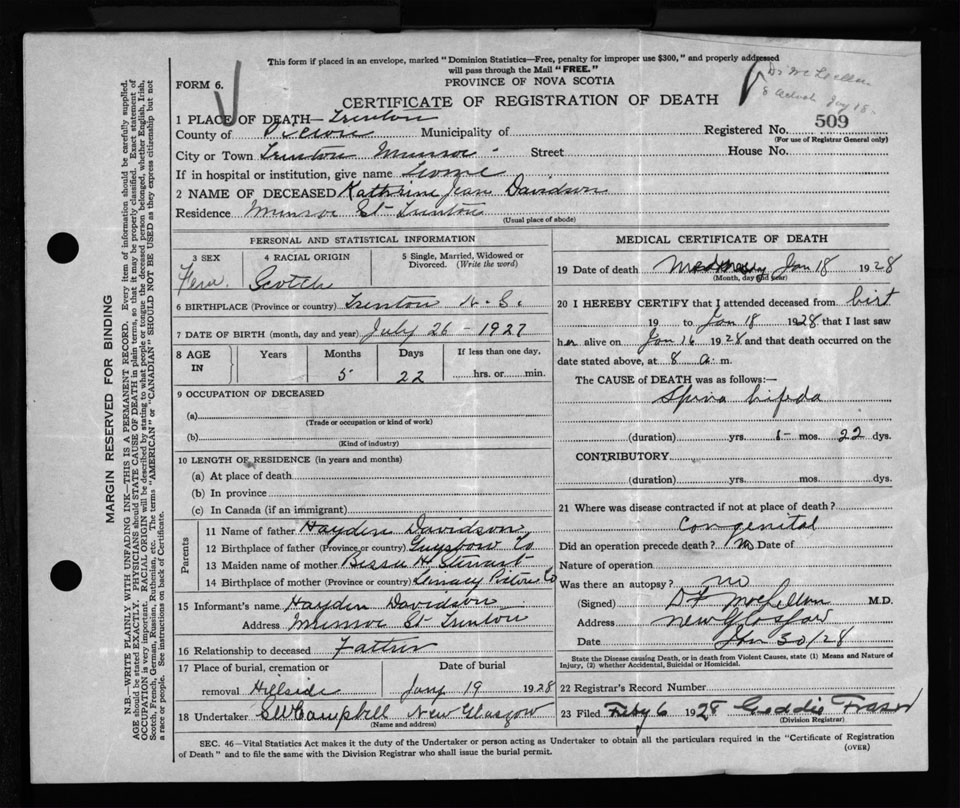 This form if placed in an envelope, marked "Dominion Statistics—Free, penalty for improper use $300," and properly addressed
will pass through the Mail "FREE."
FORM 6.
PROVINCE OF NOVA SCOTIA
Dr McLellan
CERTIFICATE OF REGISTRATION OF DEATH
Jany 18.
1 PLACE OF DEATH— Trenton
509
County of Pictou Municipality of Registered No.
(For use of Registrar General only)
City or Town Trenton Munroe - Street House No.
If in hospital or institution, give name Home
2 NAME OF DECEASED Kathrine Jean Davidson
Residence Munroe St Trenton
(Usual place of abode)
PERSONAL AND STATISTICAL INFORMATION
3 SEX
Fem.
4 RACIAL ORIGIN
Scotch
5 Single, Married, Widowed or
Divorced. (Write the word)
6 BIRTHPLACE (Province or country) Trenton N. S.
7 DATE OF BIRTH (month, day and year) July 26 - 1927
8 AGE
IN
Years
Months
5
Days
22
If less than one day,
hrs. or min.
9 OCCUPATION OF DECEASED
(a)
(Trade or occupation or kind of work)
(b)
(Kind of industry)
10 LENGTH OF RESIDENCE (in years and months)
(a) At place of death
(b) In province
(c) In Canada (if an immigrant)
Parents
11 Name of father Hayden Davidson
12 Birthplace of father (Province or country) Guysboro Co
13 Maiden name of mother Bessie H Stewart
14 Birthplace of mother (Province or country) Pictou Co
15 Informant's name Hayden Davidson
Address Munroe St Trenton
16 Relationship to deceased Father
17 Place of burial, cremation or Date of burial
removal Hillside Jany 19 1928
18 Undertaker SW Campbell New Glasgow
(Name and address)
MEDICAL CERTIFICATE OF DEATH
19 Date of death Jan 18 1928
(Month, day and year)
20 I HEREBY CERTIFY that I attended deceased from birt
19 to Jan 18 1928 that I last saw
her alive on Jan 16 1928 and that death occurred on the
date stated above, at 8 a. m.
The CAUSE OF DEATH was as follows:—
Spina bifida
(duration) yrs. 5- mos. 22 dys.
CONTRIBUTORY
(duration) yrs. mos. dys.
21 Where was disease contracted if not at place of death?
Congenital
Did an operation precede death? No Date of
Nature of operation
Was there an autopsy? no
(Signed) D F McLellan M.D.
Address New Glasgow
Date Jan 30/28
State the Disease causing Death, or in death from Violent Causes, state (1) Means and Nature of
Injury, (2) whether Accidental, Suicidal or Homicidal.
22 Registrar's Record Number
23 Filed Feby 6 1928 Geddie Fraser
(Division Registrar)
SEC. 46—Vital Statistics Act makes it the duty of the Undertaker or person acting as Undertaker to obtain all the particulars required in the "Certificate of Registration
of Death" and to file the same with the Division Registrar who shall issue the burial permit.
(OVER)
MARGIN RESERVED FOR BINDING
N.B.—WRITE PLAINLY WITH UNFADING INK—THIS IS A PERMANENT RECORD. Every item of information should be carefully supplied.
AGE should be stated EXACTLY. PHYSICIANS should STATE CAUSE OF DEATH in plain terms, so that it may be properly classified. Exact statement of
OCCUPATION is very important. RACIAL ORIGIN will be described by stating to what people or tongue the deceased person belonged, whether English, Irish,
Scotch, French, German, Russian, Ruthenian, etc. The terms "AMERICAN" or "CANADIAN" SHOULD NOT BE USED as they express citizenship but not
a race or people. See instructions on back of Certificate.